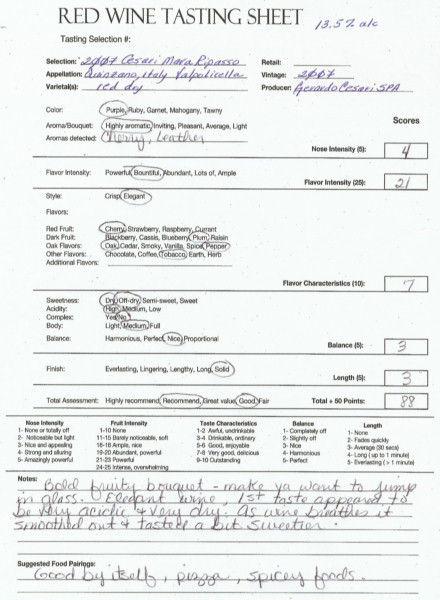 RED WINE TASTING SHEET 13.5% alc
Tasting Selection #:
Selection: 2007 Cesari Mara Ripasso Retail:
Appellation: Quinzano, Italy Valpolicella Vintage: 2007
Varietal(s): red dry Producer: Gerardo Cesari SPA
Color: Purple, Ruby, Garnet, Mahogany, Tawny
Scores
Aroma/Bouquet: Highly aromatic, Inviting, Pleasant, Average, Light
Aromas detected: Cherry, Leather
Nose Intensity (5): 4
Flavor Intensity: Powerful, Bountiful, Abundant, Lots of, Ample
Flavor Intensity (25): 21
Style: Crisp, Elegant
Flavors:
Red Fruit: Cherry, Strawberry, Raspberry, Currant
Dark Fruit: Blackberry, Cassis, Blueberry, Plum, Raisin
Oak Flavors: Oak, Cedar, Smoky, Vanilla, Spice, Pepper
Other Flavors: Chocolate, Coffee, Tobacco, Earth, Herb
Additional Flavors:
Flavor Characteristics (10): 7
Sweetness: Dry, Off-dry, Semi-sweet, Sweet
Acidity: High, Medium, Low
Complex: Yes/No
Body: Light, Medium, Full
Balance: Harmonious, Perfect, Nice, Proportional
Balance (5): 3
Finish: Everlasting, Lingering, Lengthy, Long, Solid
Length (5): 3
Total Assessment: Highly recommend, Recommend, Great value, Good, Fair Total + 50 Points: 88
Nose Intensity Fruit Intensity Taste Characteristics Balance Length
1- None or totally off 1-10 None 1-2 Awful, undrinkable 1- Completely off 1- None
2- Noticeable but light 11-15 Barely noticeable, soft 3-4 Drinkable, ordinary 2- Slightly off 2- Fades quickly
3- Nice and appealing 16-18 Ample, nice 5-6 Good, enjoyable 3- Nice 3- Average (30 secs)
4- Strong and alluring 19-20 Abundant, powerful 7-8 Very good, delicious 4- Harmonious 4- Long (up to 1 minute)
5- Amazingly powerful 21-23 Powerful 9-10 Outstanding 5- Perfect 5- Everlasting (> 1 minute)
24-25 Intense, overwhelming
Notes: Bold fruity bouquet - make ya want to jump
in glass. Elegant wine, 1st taste appeared to
be very acidic & very dry. As wine breathes it
smoothed out & tasted a bit sweeter.
Suggested Food Pairings:
Good by itself, pizza, spicey foods.